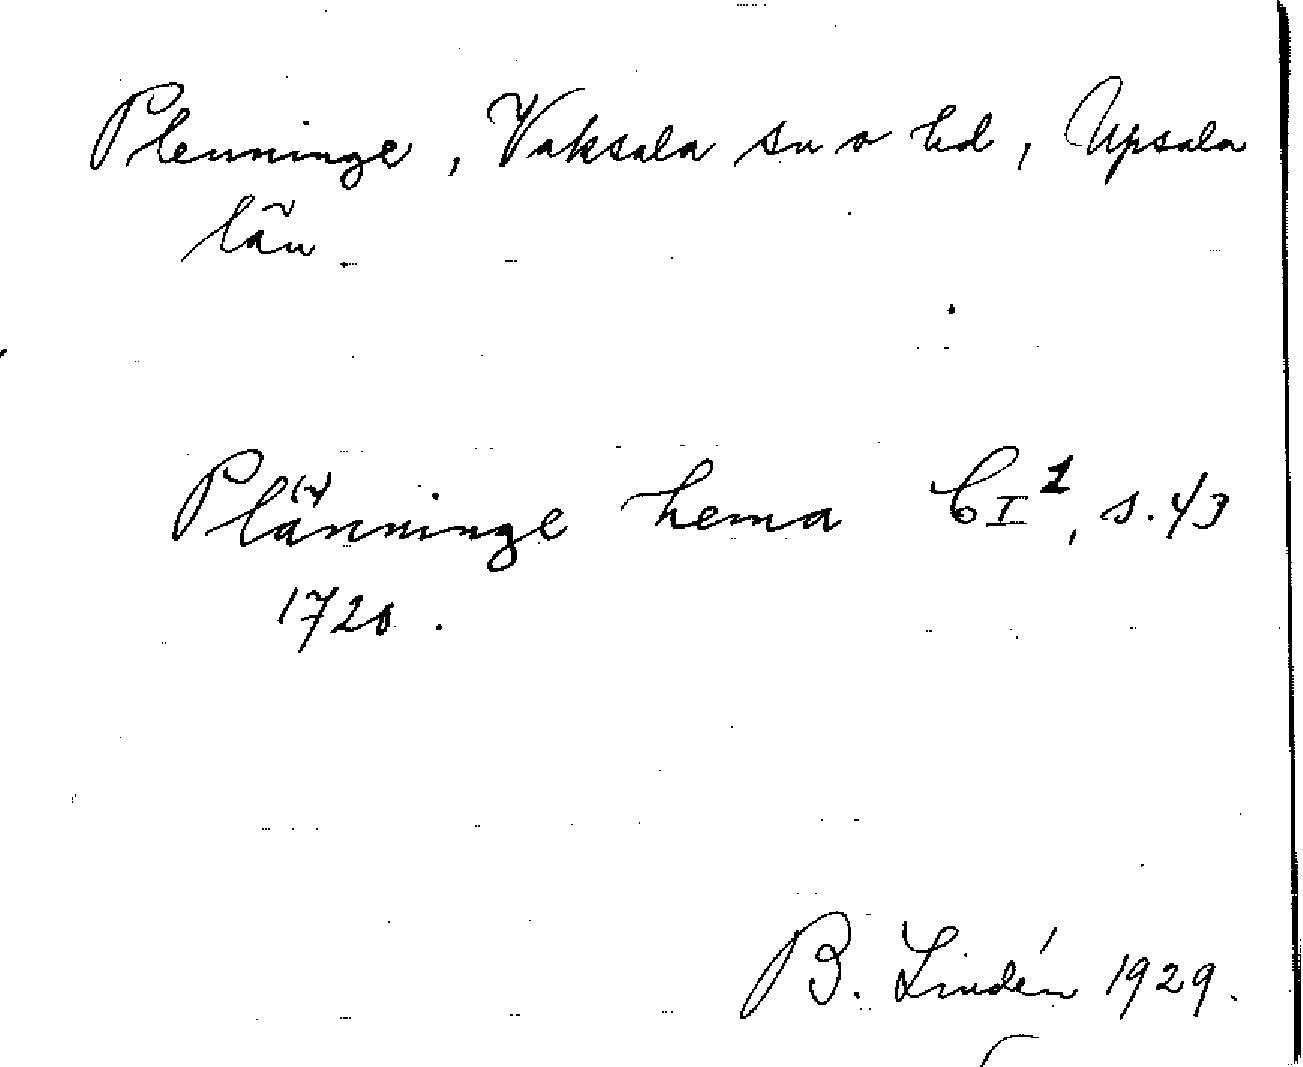 Plenninge, Vaksala sn o hd, Upsala
län
Plänninge hema CI¹, s. 43
1720.
B. Lindén 1929.